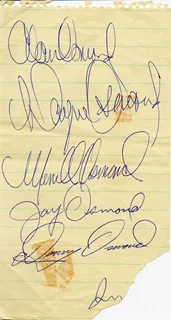 Alan Osmond
Wayne Osmond
Merrill Osmond
Jay Osmond
Donny Osmond